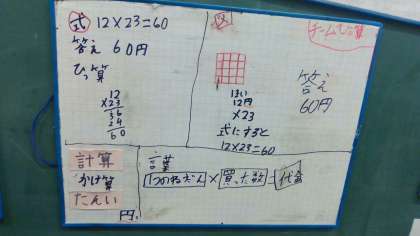 式 12×23=60
答え 60円
ひっ算
12
×23
36
24
60
図
12円
×23
式にすると
12×23=60
答え
60円
計算
かけ算
たんい
円
言葉
1つのねだん × 買った数 = 代金